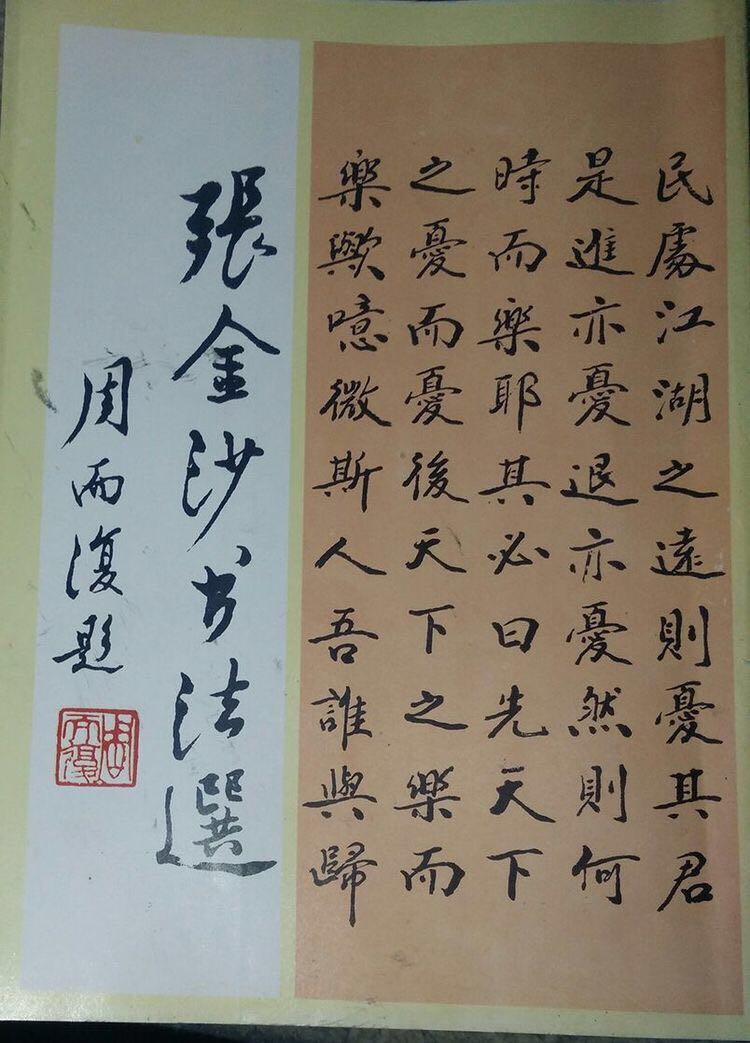 民處江湖之遠則憂其君
是進亦憂退亦憂然則何
時而樂耶其必曰先天下
之憂而憂後天下之樂而
樂歟噫微斯人吾誰與歸
張金沙书法選
周而復題
周而復